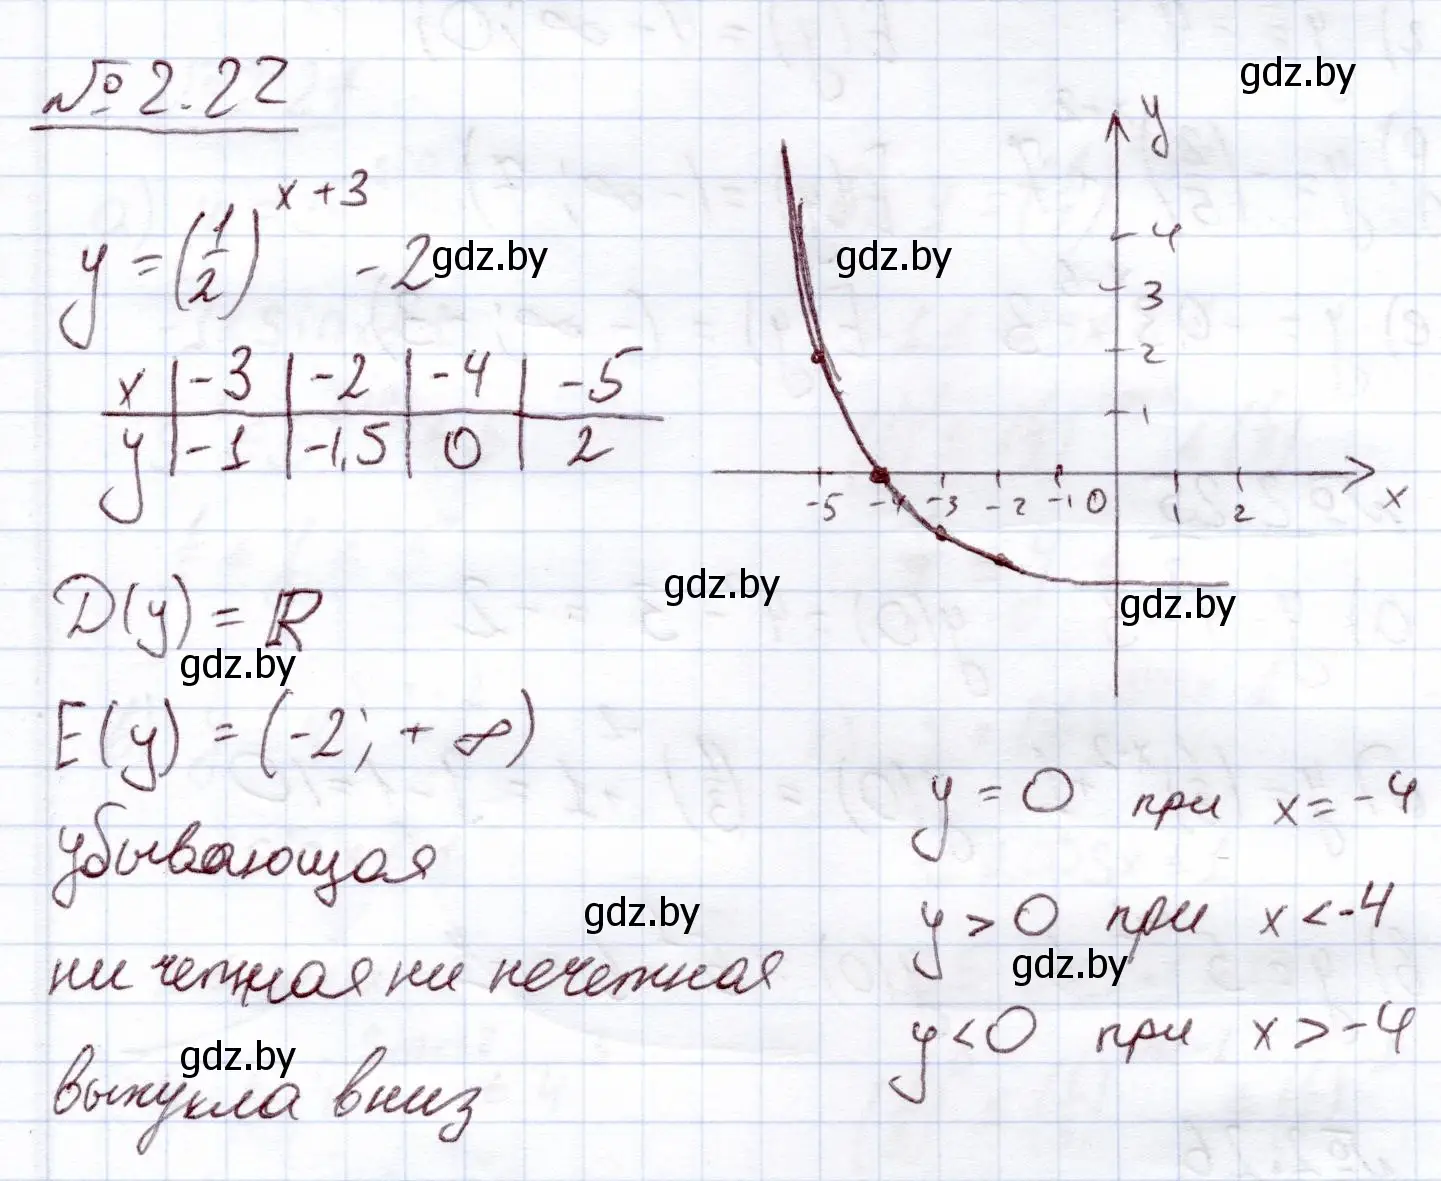 № 2.22
gdz.by
y = (1/2)^(x+3) - 2
gdz.by
gdz.by
x | -3 | -2 | -4 | -5
y | -1 | -1,5 | 0 | 2
y
4
3
2
1
-5 -4 -3 -2 -1 0 1 2 x
D(y) = ℝ
gdz.by
gdz.by
gdz.by
E(y) = (-2; +∞)
убывающая
ни четная ни нечетная
выпукла вниз
gdz.by
gdz.by
y = 0 при x = -4
y > 0 при x < -4
gdz.by
y < 0 при x > -4